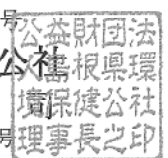 号
公社
号
公益財団法
人島根県環
境保健公社
理事長之印